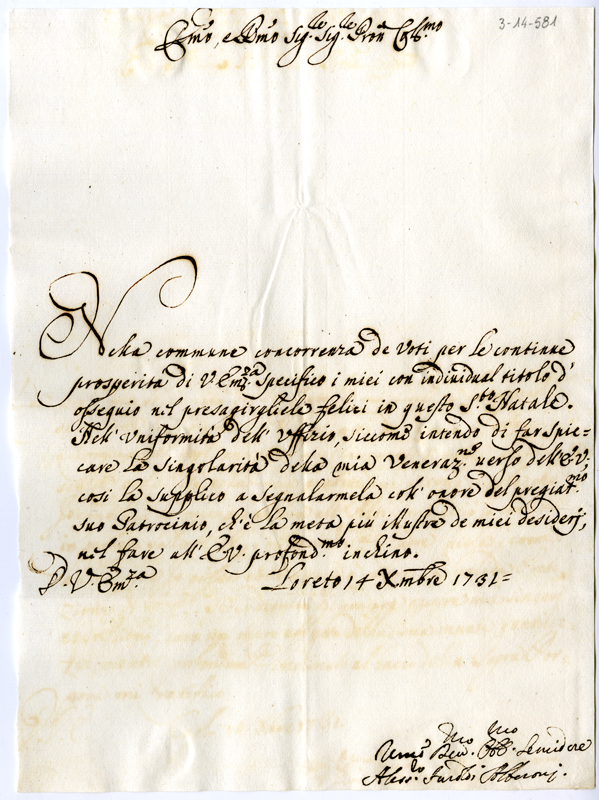 3-14-581
Em̃o, e Rm̃o Sig.re Sig.re Pron Col.mo
Nella commune concorrenza de Voti per le continue
prosperità di V. Em.za specifico i miei con individual titolo d'
ossequio nel presagirgliele felici in questo S.to Natale.
Nell' Uniformità dell' Uffizio, siccome intendo di far spic=
care la singolarità della mia Veneraz.ne verso dell' E.V.,
così la supplico a segnalarmela coll' onore del pregiat.mo
suo Patrocinio, ch'è la meta più illustre de miei desiderj,
nel fare all' E.V. profond.mo inchino.
D. V. Em.za Loreto 14 Xmbre 1731=
Um̃o Dev.mo Obb.mo Servidore
Aless.ro Alberonj.